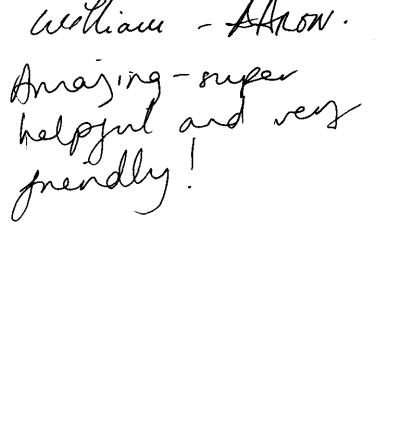 William - AARON.
Amazing - super
helpful and very
friendly!